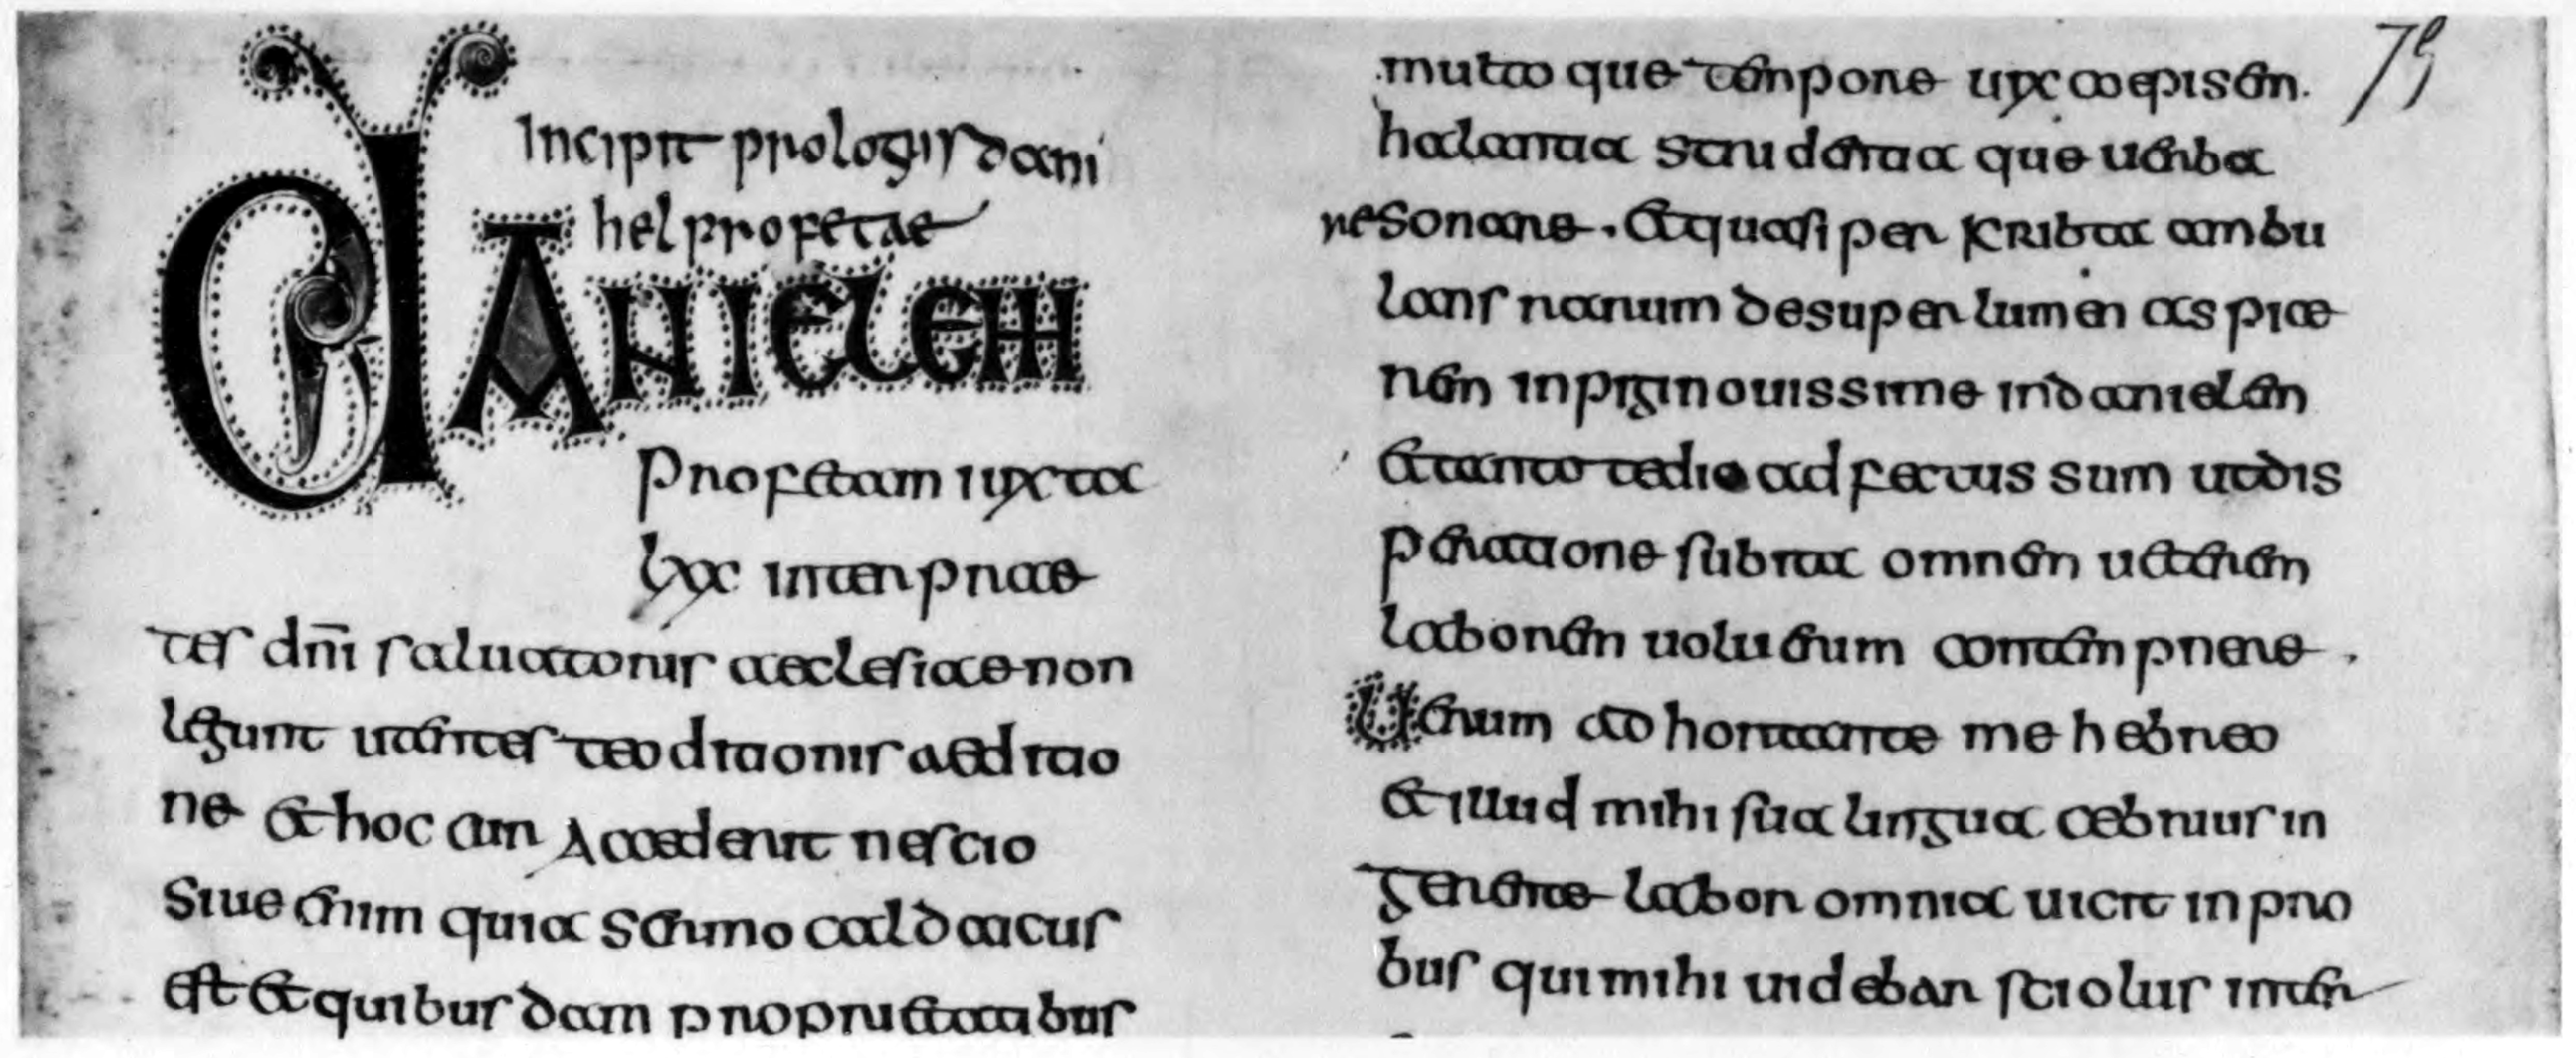 Incipit prologus dani
hel profetae
DANIELEM
profetam iuxta
lxx interprae
tes dñi saluatoris aeclesiae non
legunt utentes teoditionis aeditio
ne et hoc cur accederit nescio
siue enim quia sermo caldaicus
est et quibusdam proprietatibus
79
mutoque tempore uix coepisem.
halantia stridentia que uerba
resonare . et quasi per kribta ambu
lans rarum desuper lumen aspice
rem inpigi nouissime in danielem
et tanto tedio adfectus sum ut dis
peratione subita omnem ueterem
laborem uoluerum contempnere .
Uerum adhortante me hebreo
et illud mihi sua lingua crebrius in
gerente labor omnia uicit inpro
bus qui mihi uidebar sciolus inter